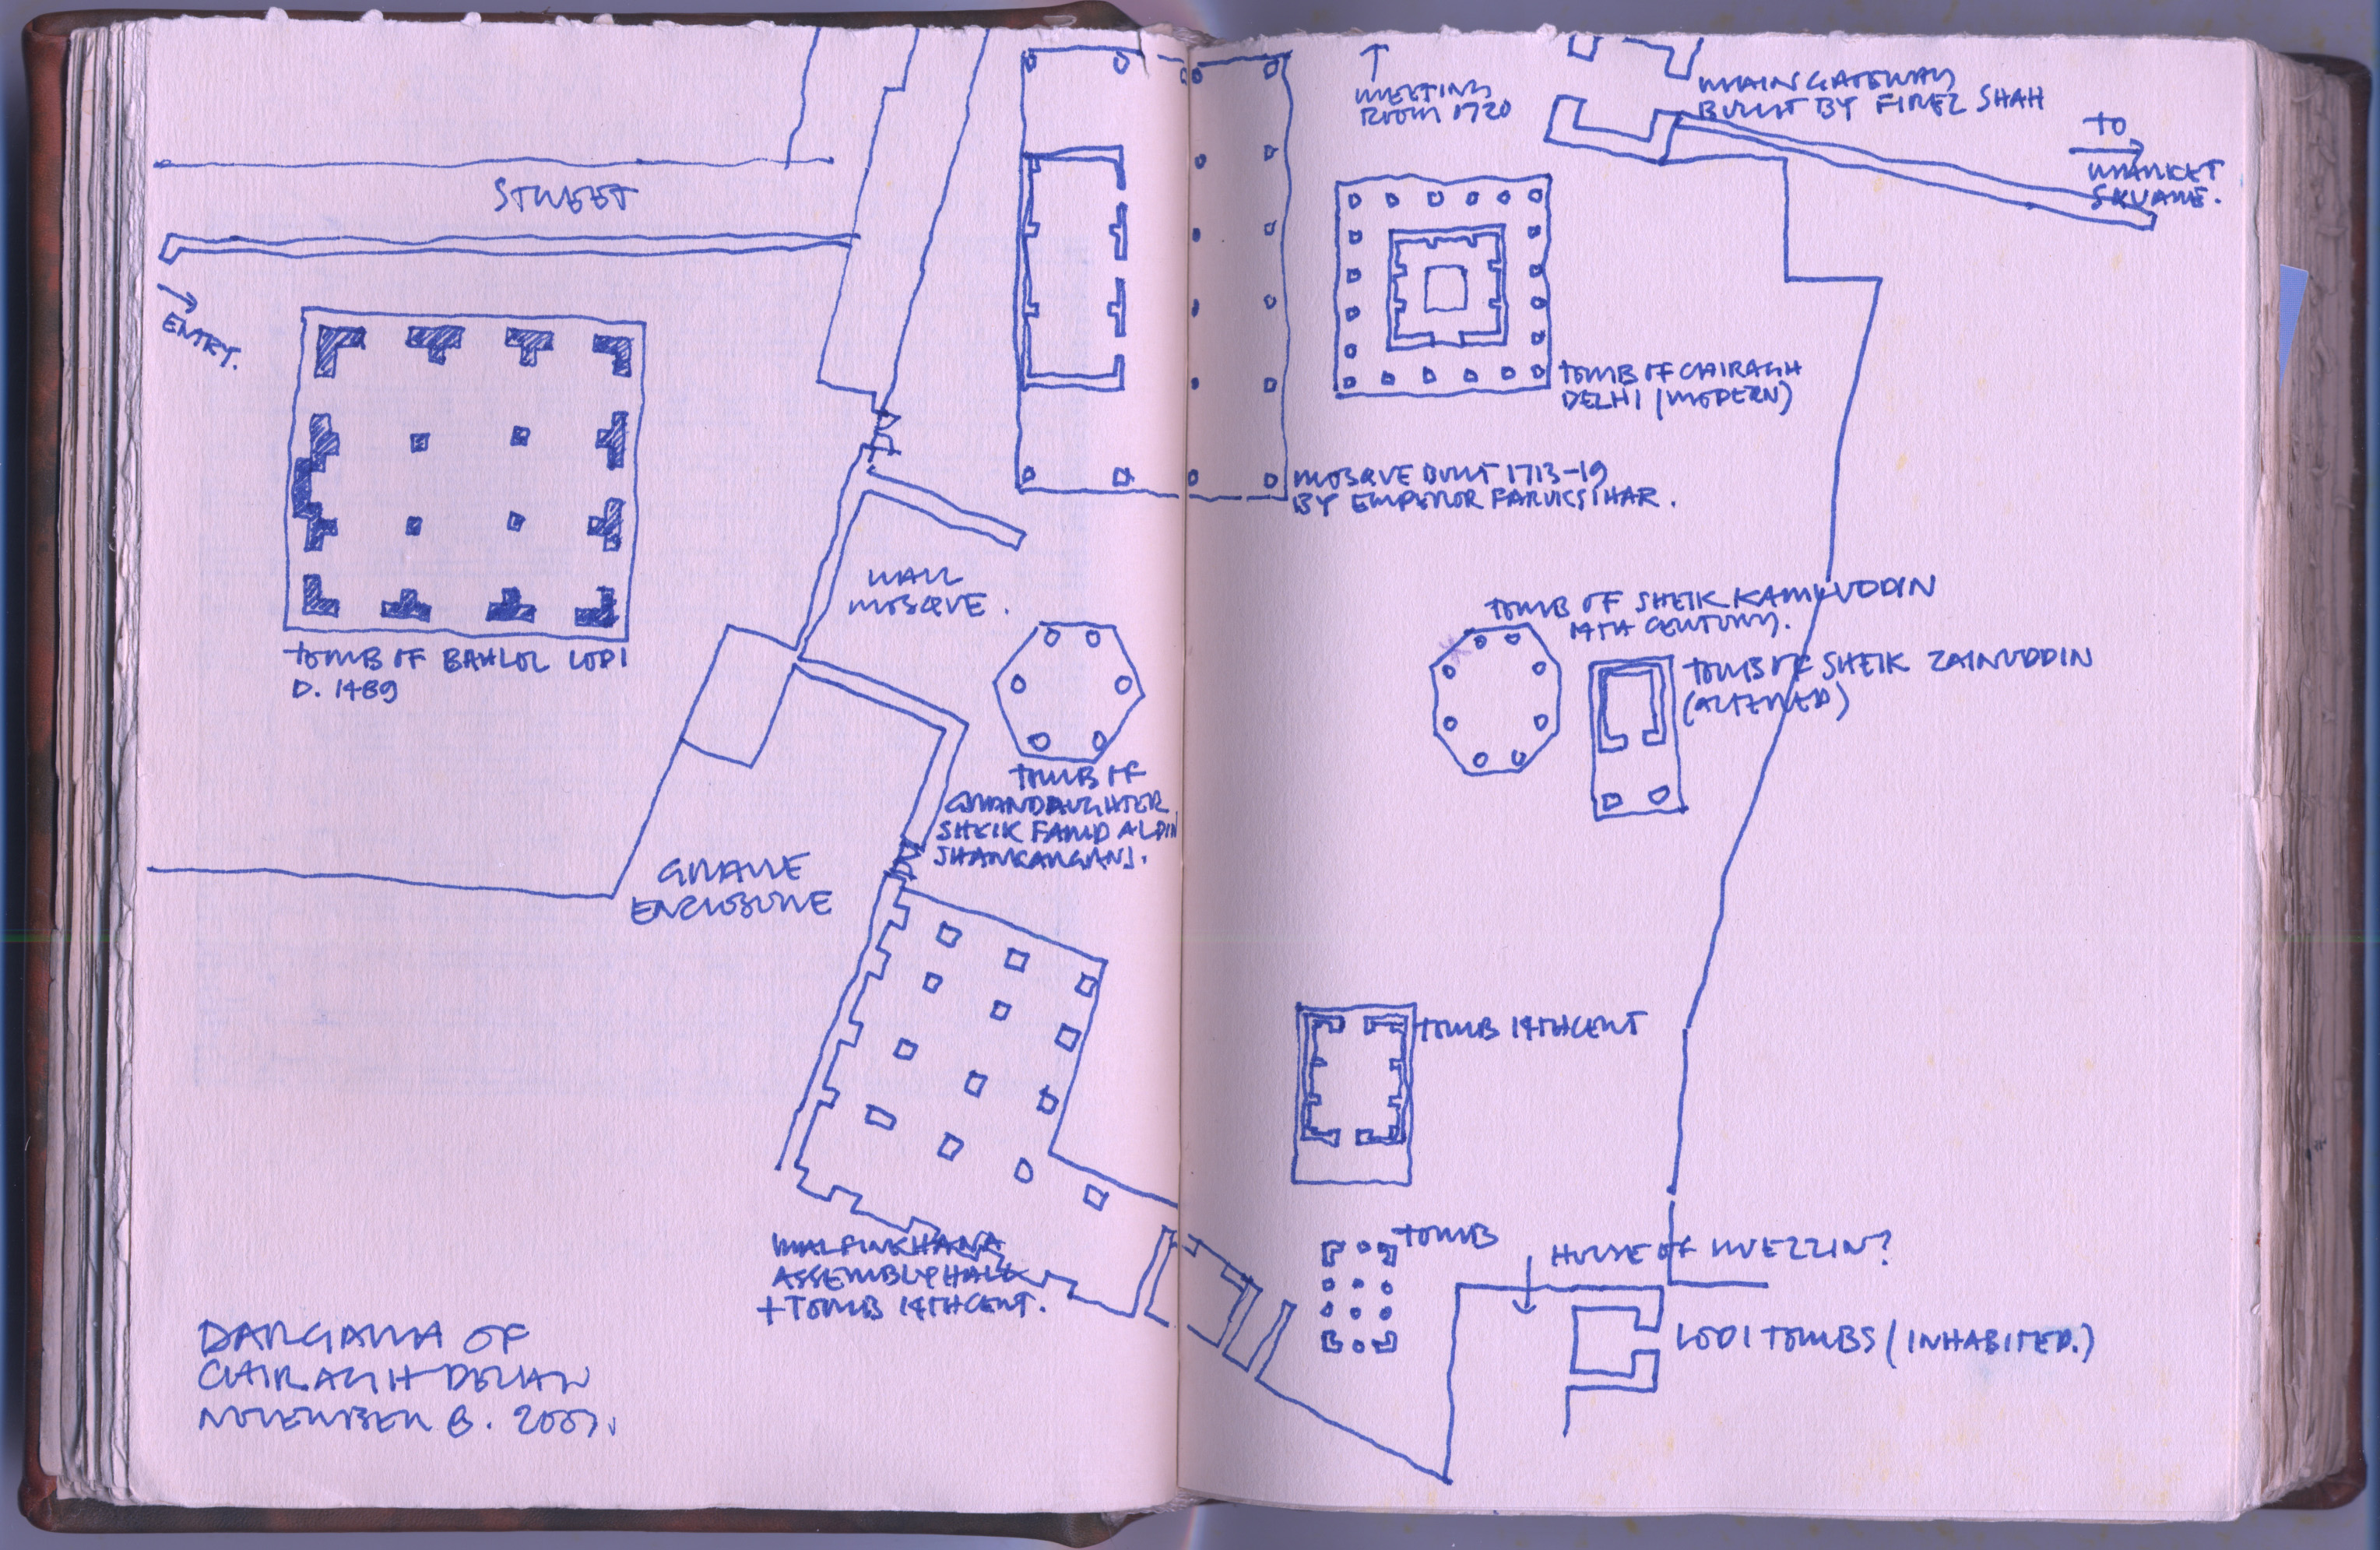 STREET
ENTRY.
TOMB OF BAHLOL LODI
D. 1489
WALL
MOSQVE.
TOMB OF
GRANDAUGHTER
SHEIK FARID ALDIN
SHANKARGANJ.
GRAVE
ENCLOSURE
ASSEMBLY HALL
+ TOMB 14TH CENT.
DARGAHA OF
CHIRAGH DELHI
NOVEMBER 8. 2007.
MEETING
ROOM 1720
MAIN GATEWAY
BUILT BY FIREZ SHAH
TO
MARKET
SKUARE.
TOMB OF CHIRAGH
DELHI (MODERN)
MOSQVE BUILT 1713-19
BY EMPEROR FARUKSIHAR.
TOMB OF SHEIK KAMUUDDIN
14TH CENTURY.
TOMB OF SHEIK ZAINUDDIN
(ALTERED)
TOMB 14TH CENT
TOMB
HOUSE OF MUEZZIN?
LODI TOMBS (INHABITED.)